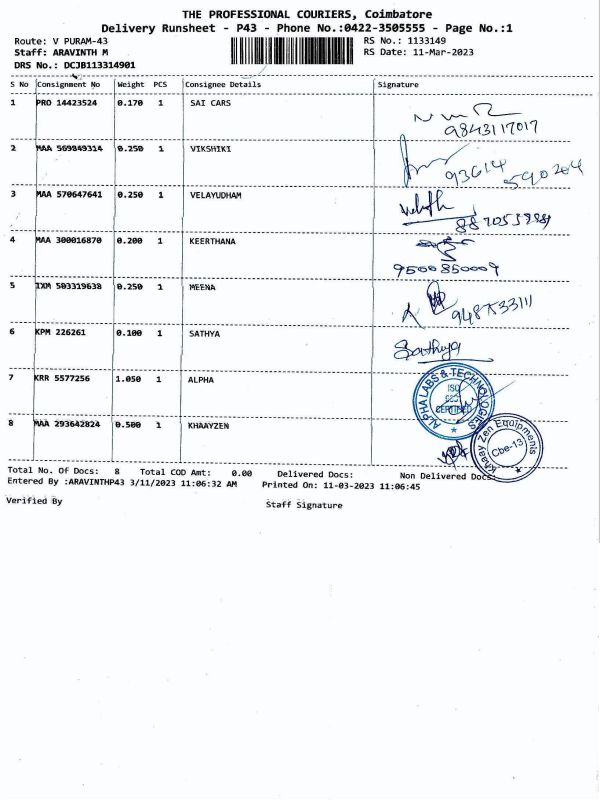 THE PROFESSIONAL COURIERS, Coimbatore
Delivery Runsheet - P43 - Phone No.:0422-3505555 - Page No.:1
Route: V PURAM-43 RS No.: 1133149
Staff: ARAVINTH M RS Date: 11-Mar-2023
DRS No.: DCJB113314901
S No Consignment No Weight PCS Consignee Details Signature
1 PRO 14423524 0.170 1 SAI CARS
9843117017
2 MAA 569849314 0.250 1 VIKSHIKI
93614 590204
3 MAA 570647641 0.250 1 VELAYUDHAM
4 MAA 300016870 0.200 1 KEERTHANA
9500850009
5 IXM 503319638 0.250 1 MEENA
6 KPM 226261 0.100 1 SATHYA
Sathya
7 KRR 5577256 1.050 1 ALPHA
ALPHA LABS & TECHNOLOGIES
ISO
CERTIFIED
8 MAA 293642824 0.500 1 KHAAYZEN
Khaay Zen Equipments
Cbe-13
Total No. Of Docs: 8 Total COD Amt: 0.00 Delivered Docs: Non Delivered Docs:
Entered By :ARAVINTHP43 3/11/2023 11:06:32 AM Printed On: 11-03-2023 11:06:45
Verified By Staff Signature